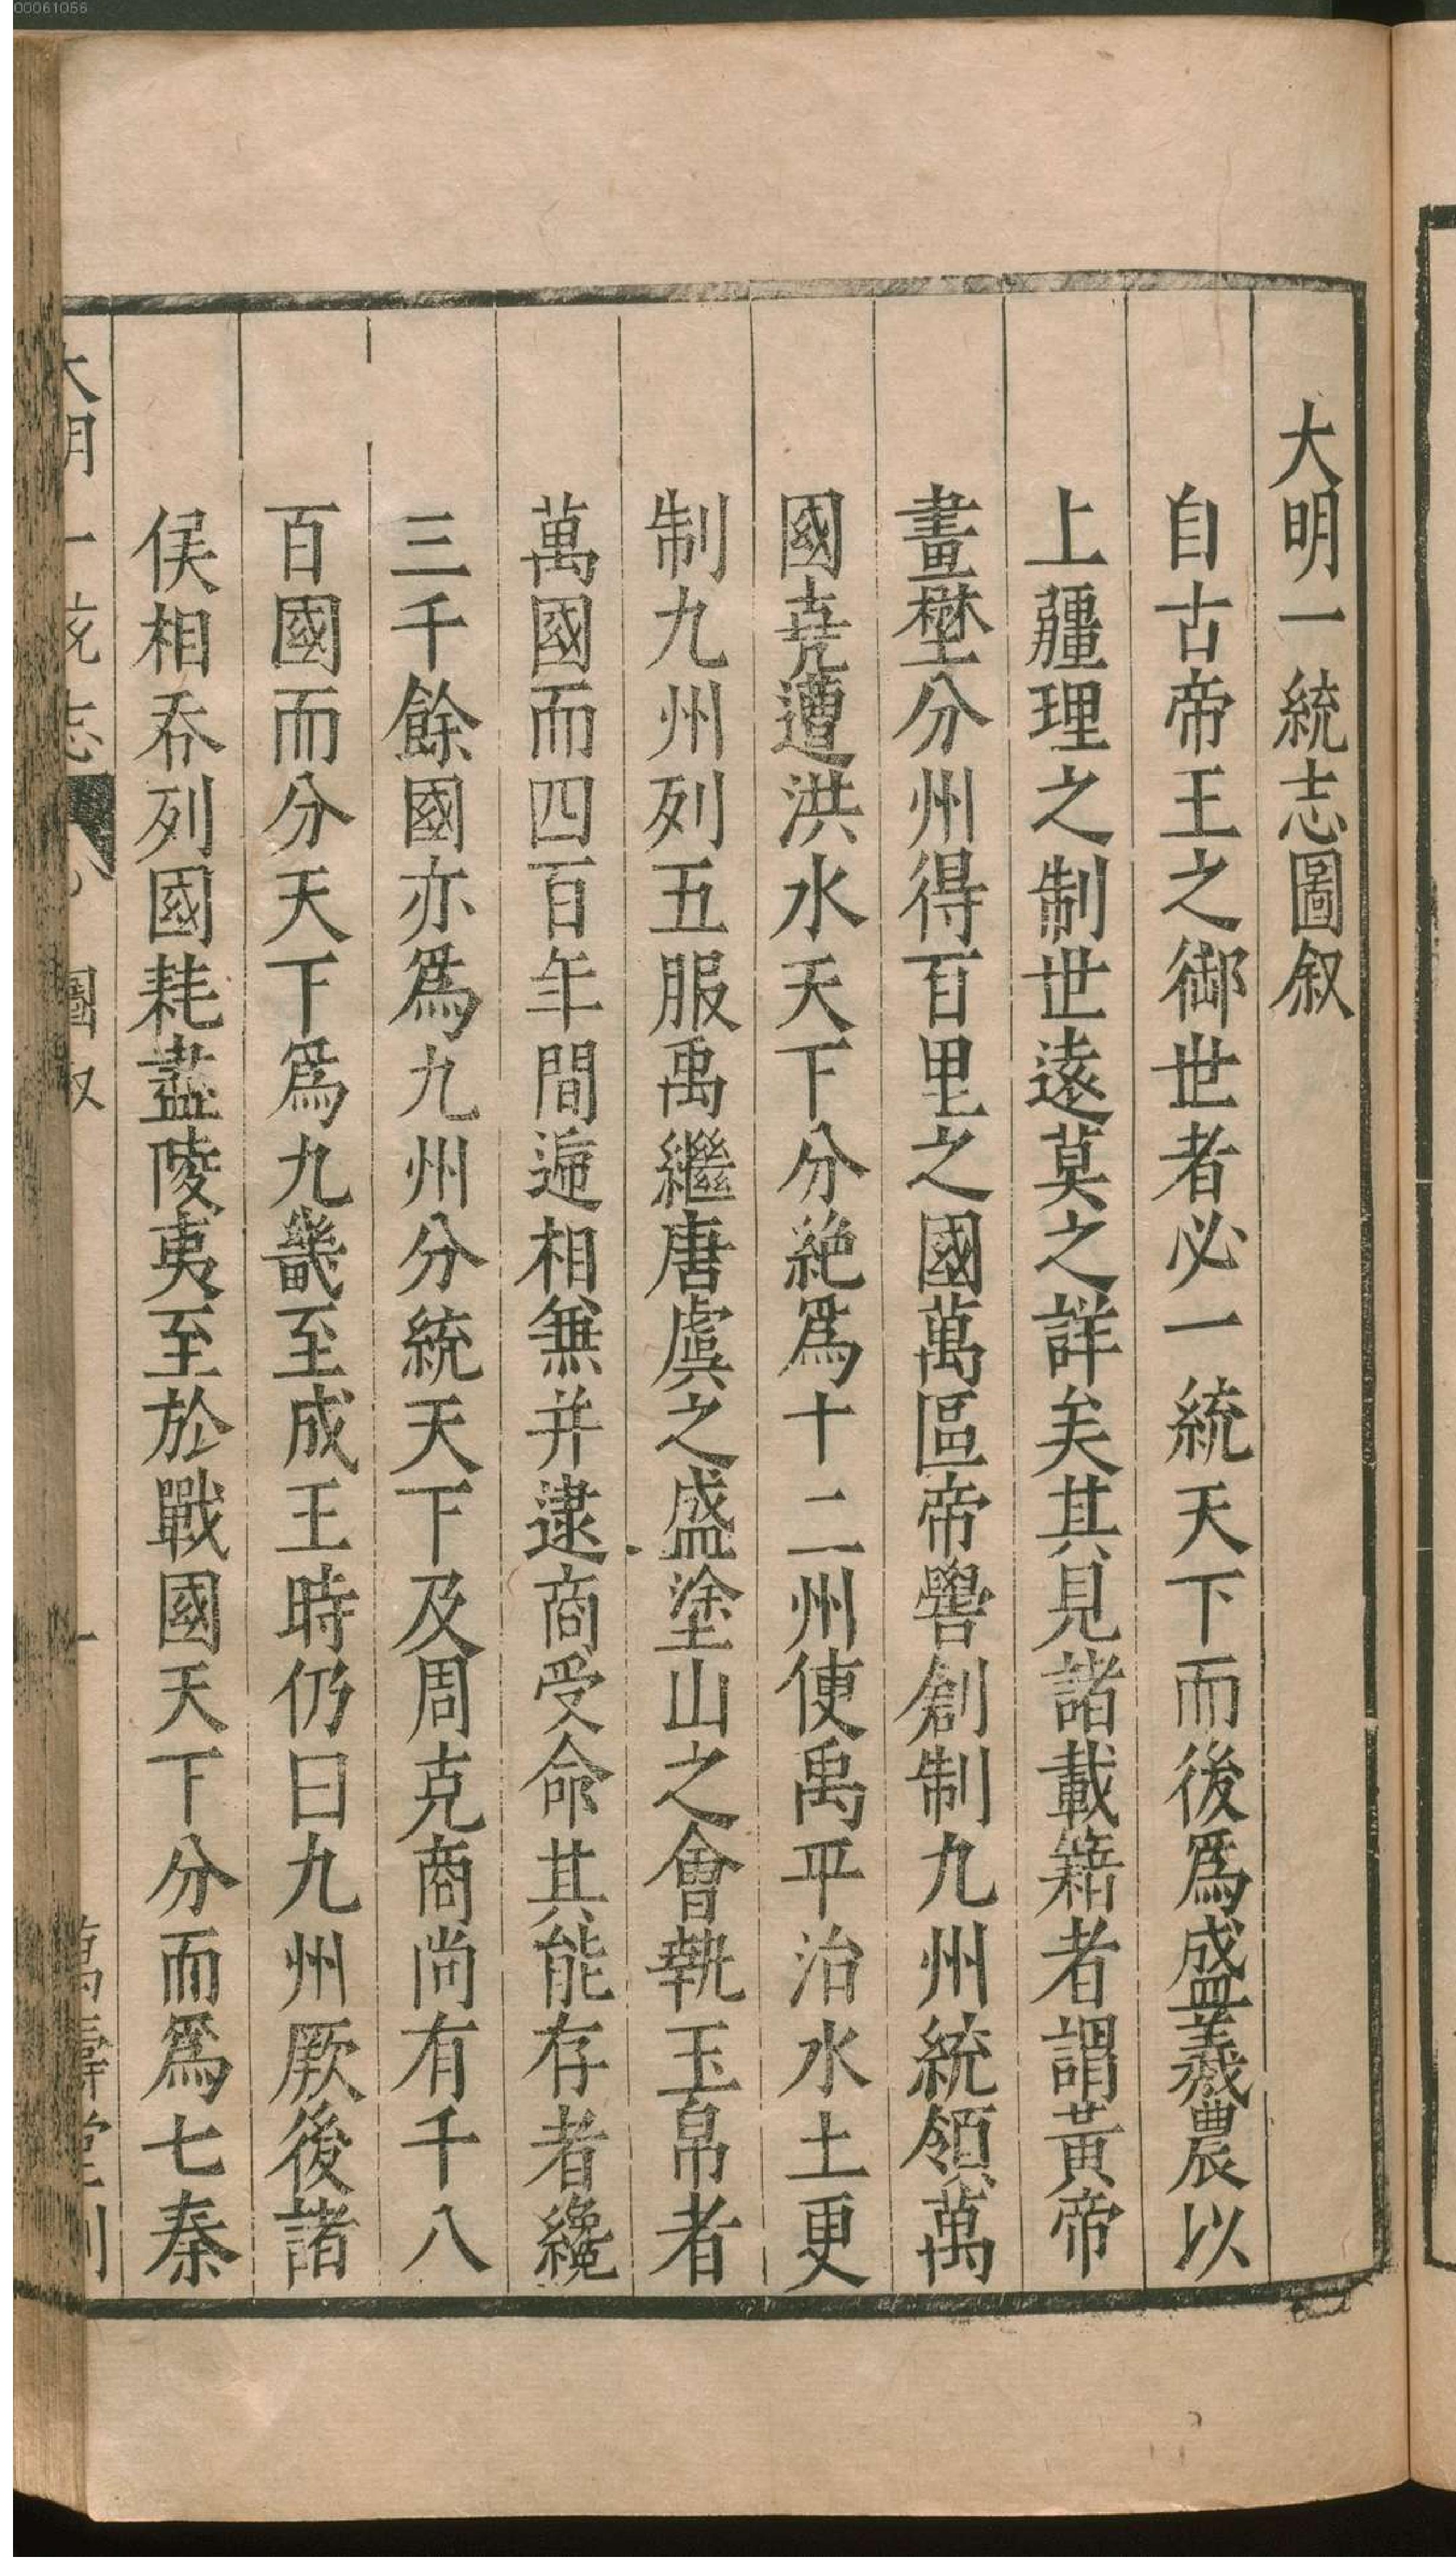 大明一統志圖叙
自古帝王之御世者必一統天下而後爲盛羲農以
上疆理之制世逺莫之詳矣其見諸載籍者謂黃帝
畫壄分州得百里之國萬區帝嚳創制九州統領萬
國堯遭洪水天下分絶爲十二州使禹平治水土更
制九州列五服禹繼唐虞之盛塗山之會執玉帛者
萬國而四百年間遞相兼并逮商受命其能存者纔
三千餘國亦爲九州分統天下及周克商尚有千八
百國而分天下爲九畿至成王時仍曰九州厥後諸
侯相吞列國耗盡陵夷至於戰國天下分而爲七秦
大明一統志
圖叙
一
萬壽堂刊
00061056